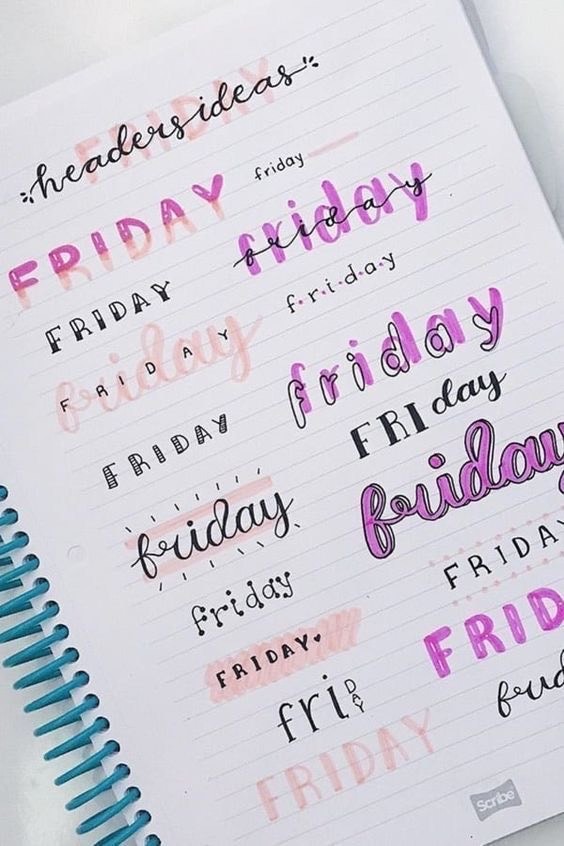 FRIDAY
headers ideas
friday
FRIDAY
friday
friday
FRIDAY
f.r.i.d.a.y
friday
FRIDAY
friday
FRIDAY
FRIday
friday
friday
FRIDAY
friday
FRIDAY
FRID
friDAY
frid
FRIDAY
Scribe